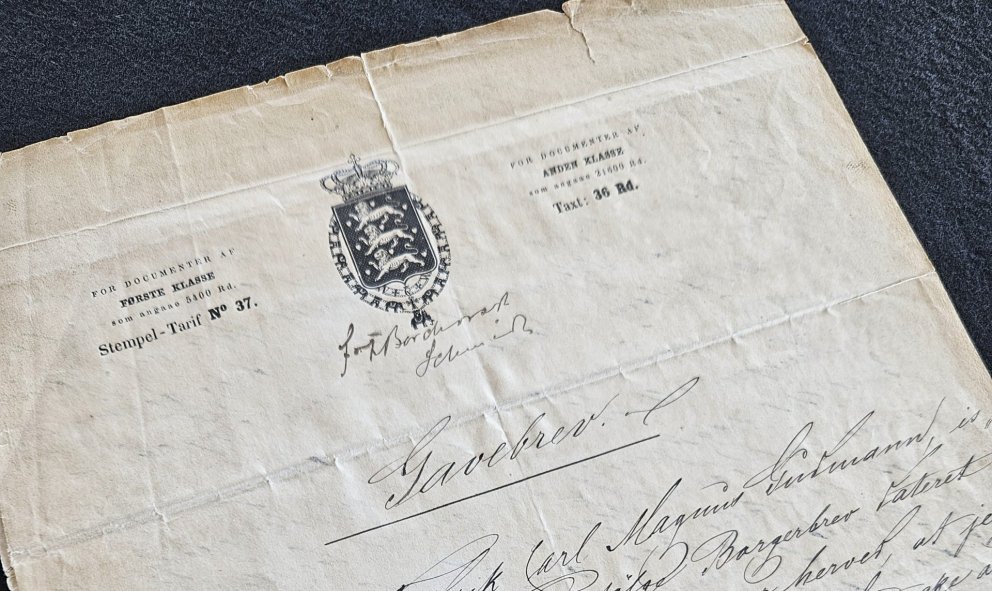 FOR DOCUMENTER AF
FØRSTE KLASSE
som angaae 5400 Rd.
Stempel-Tarif No 37.
FOR DOCUMENTER AF
ANDEN KLASSE
som angaae 21600 Rd.
Taxt: 36 Rd.
Gavebrev.
Carl Magnus Gudmann, is
Borgerbrev dateret
herved, at je